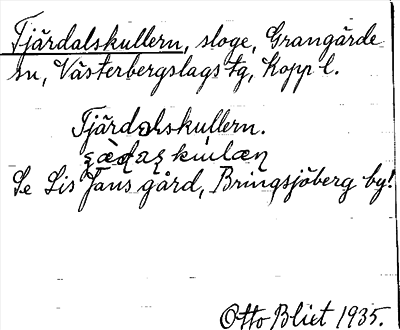 Tjärdalskullern, sloge, Grangärde
sn, Västerbergslags tg, Kopp l.
Tjärdalskullern.
Se Lis Jans gård, Bringsjöberg by!
Otto Bliet 1935.